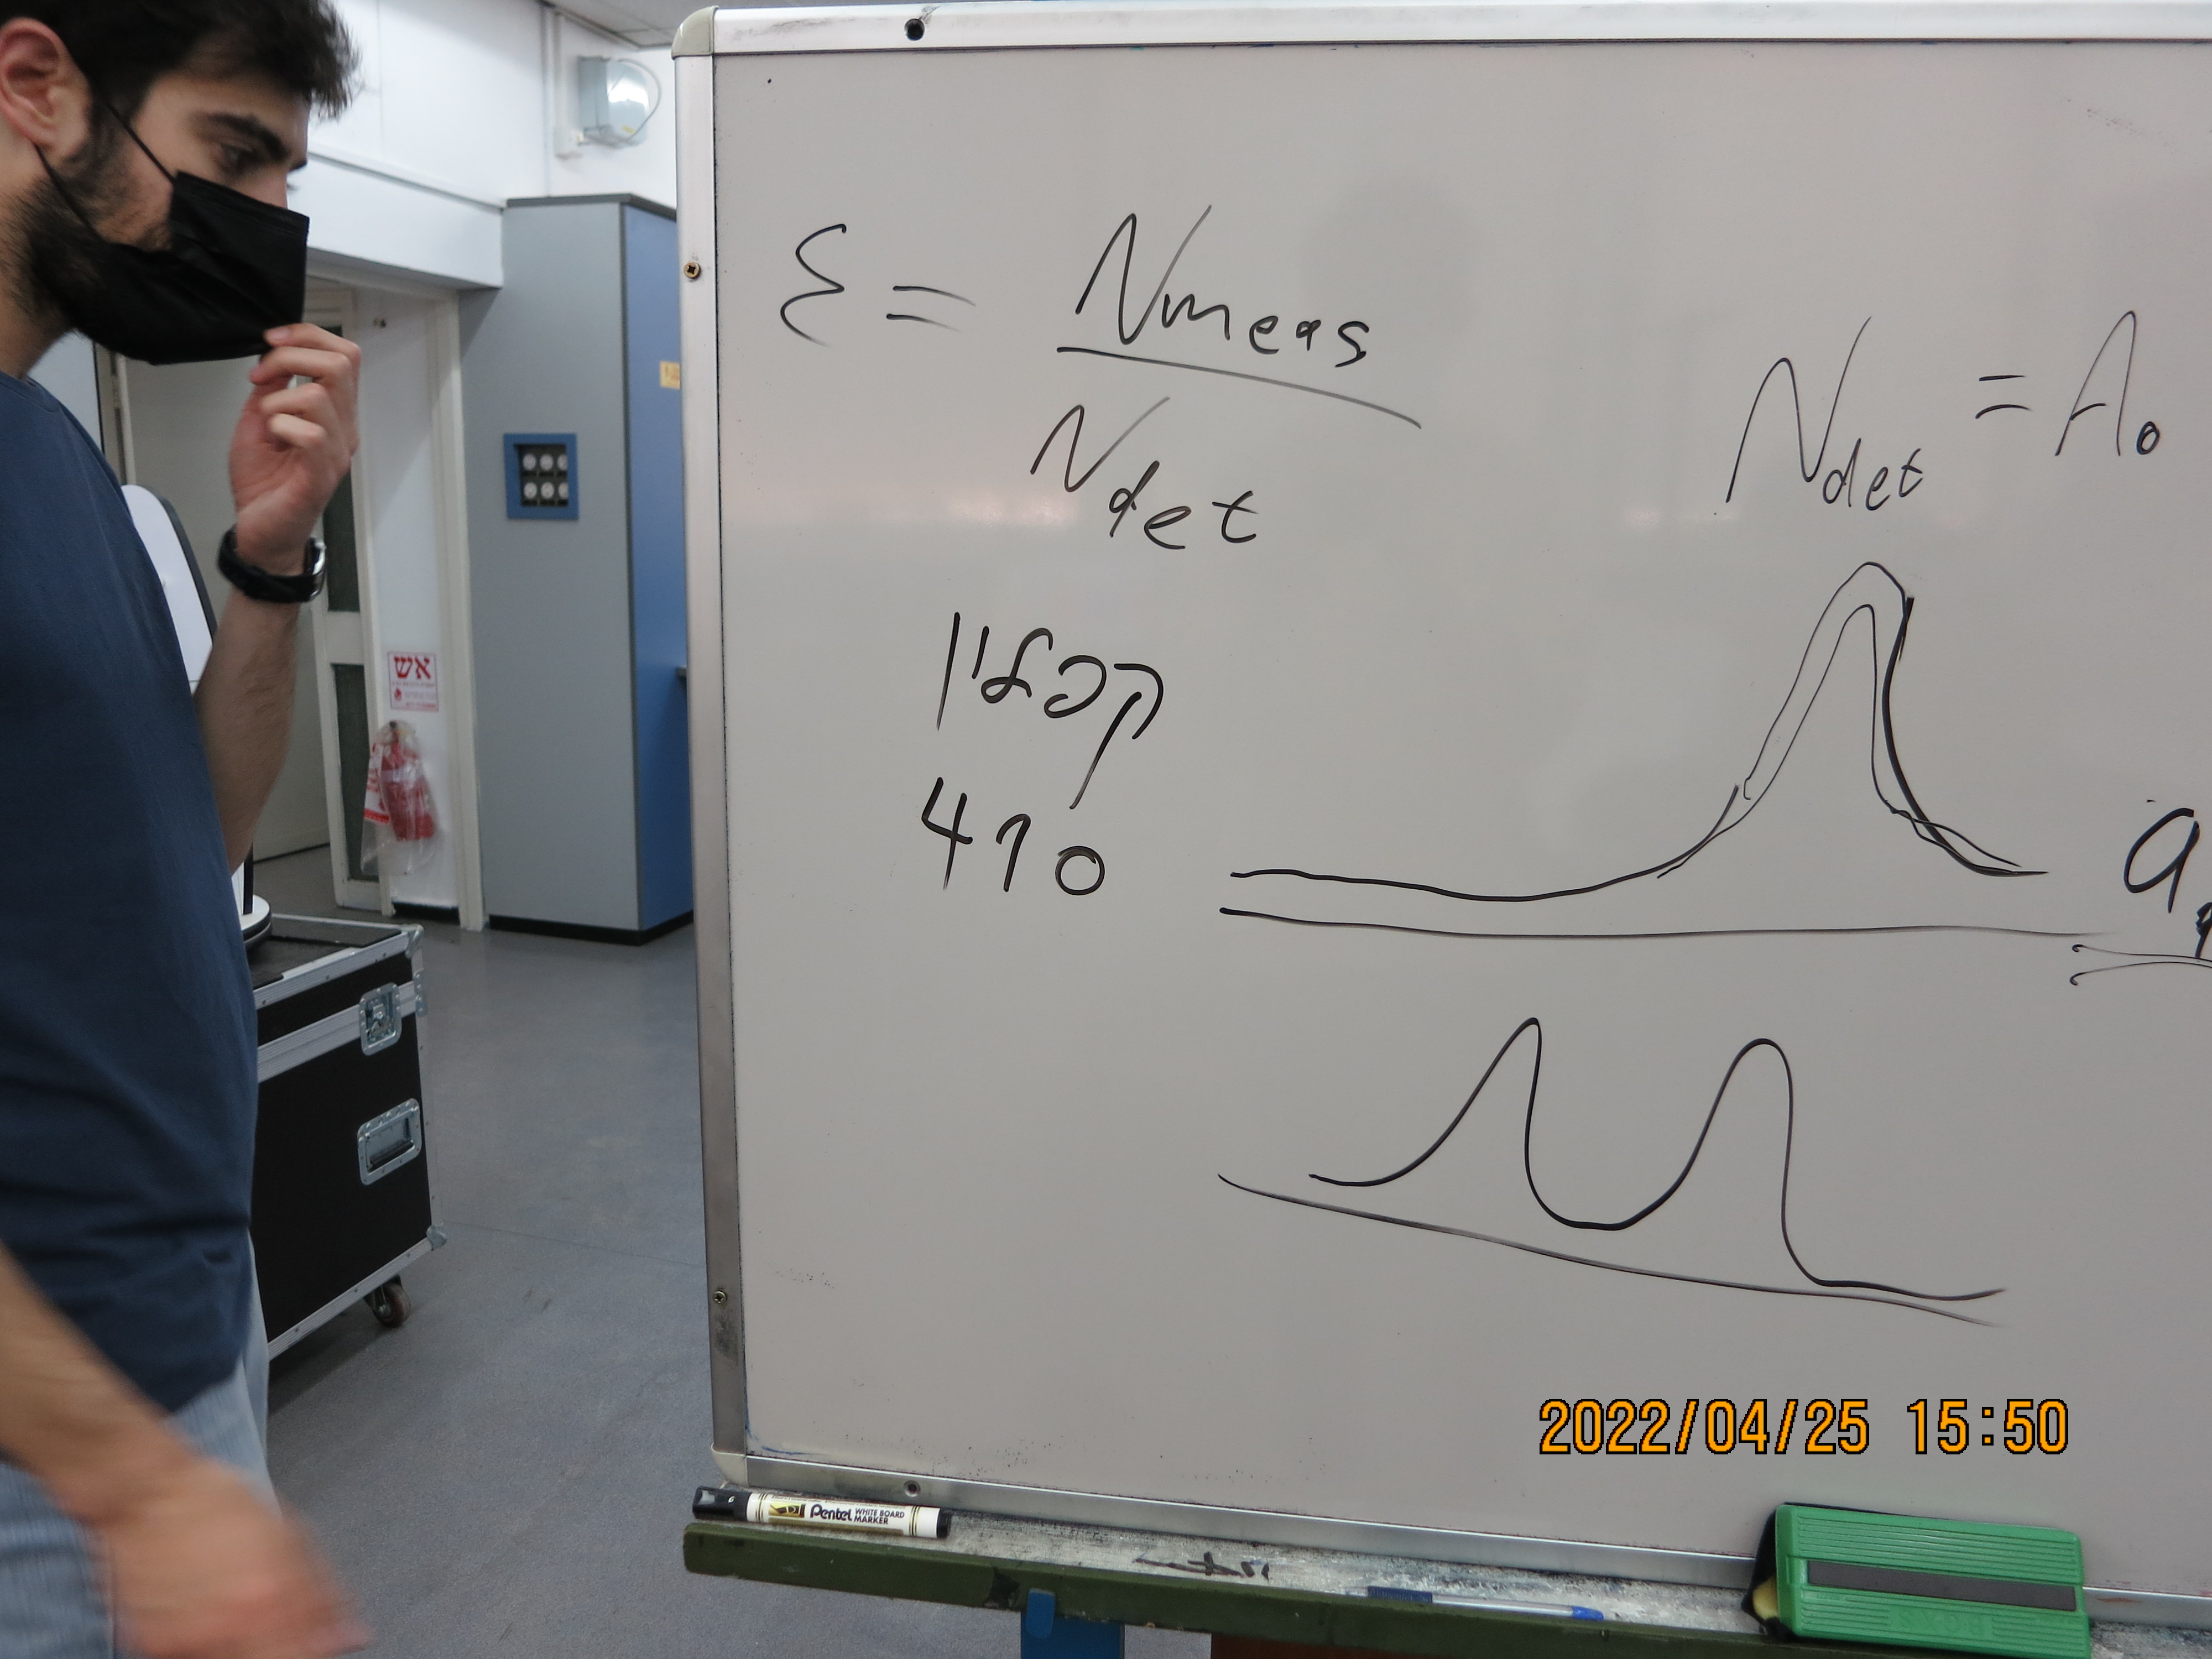 ε = Nmeas / Ndet
Ndet = A₀
קפלין
410
a
אש
2022/04/25 15:50
Pentel WHITE BOARD MARKER